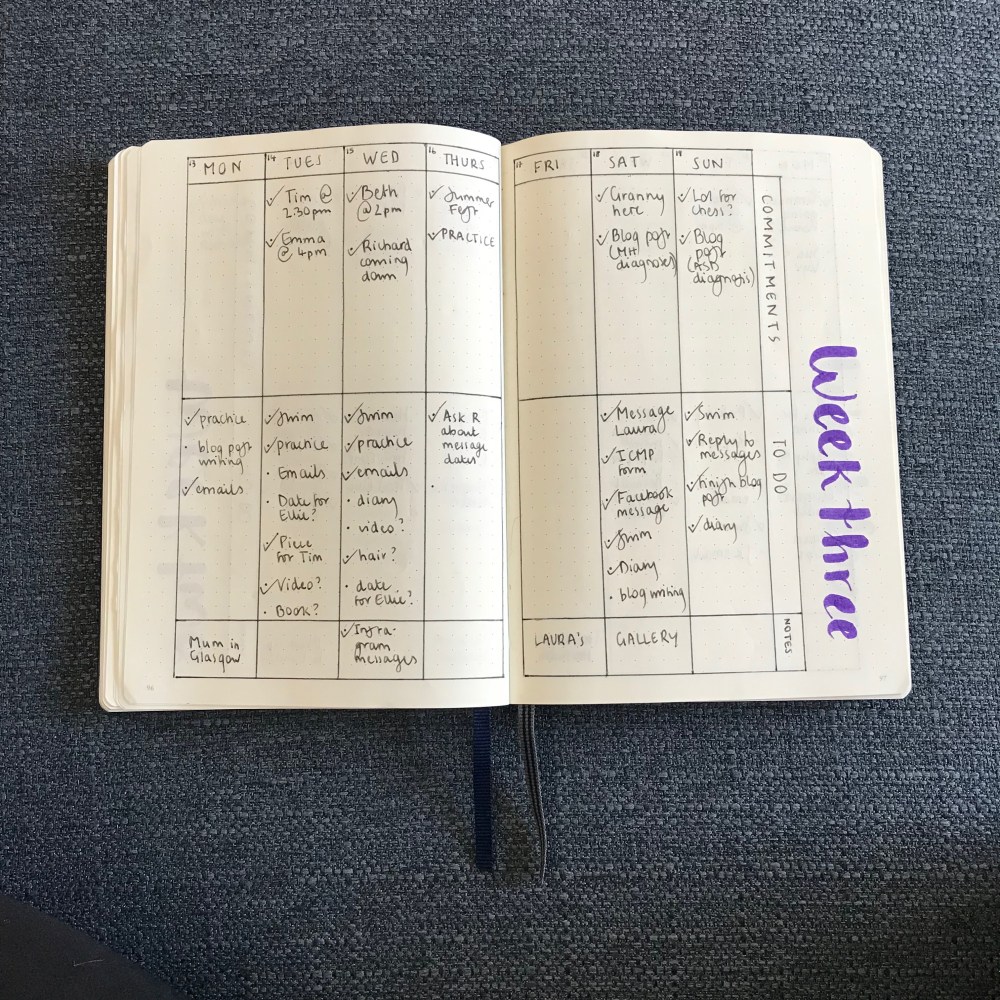 13 MON
14 TUES
15 WED
16 THURS
17 FRI
18 SAT
19 SUN
Tim @
2.30pm
Emma
@ 4pm
Beth
@ 2pm
Richard
coming
down
Summer
Fest
PRACTICE
Granny
here
Blog post
(MH
diagnoses)
Lol for
chess?
Blog
post
(ASD
diagnosis)
COMMITMENTS
practice
blog post
writing
emails
Swim
practice
Emails
Date for
Ellie?
Piece
for Tim
Video?
Book?
Swim
practice
emails
diary
video?
hair?
date
for Ellie?
Ask R
about
message
dates
Message
Laura
ICMP
form
Facebook
message
Swim
Diary
blog writing
Swim
Reply to
messages
Finish blog
post
diary
TO DO
Mum in
Glasgow
Insta-
gram
messages
LAURA'S
GALLERY
NOTES
Week three
96
97